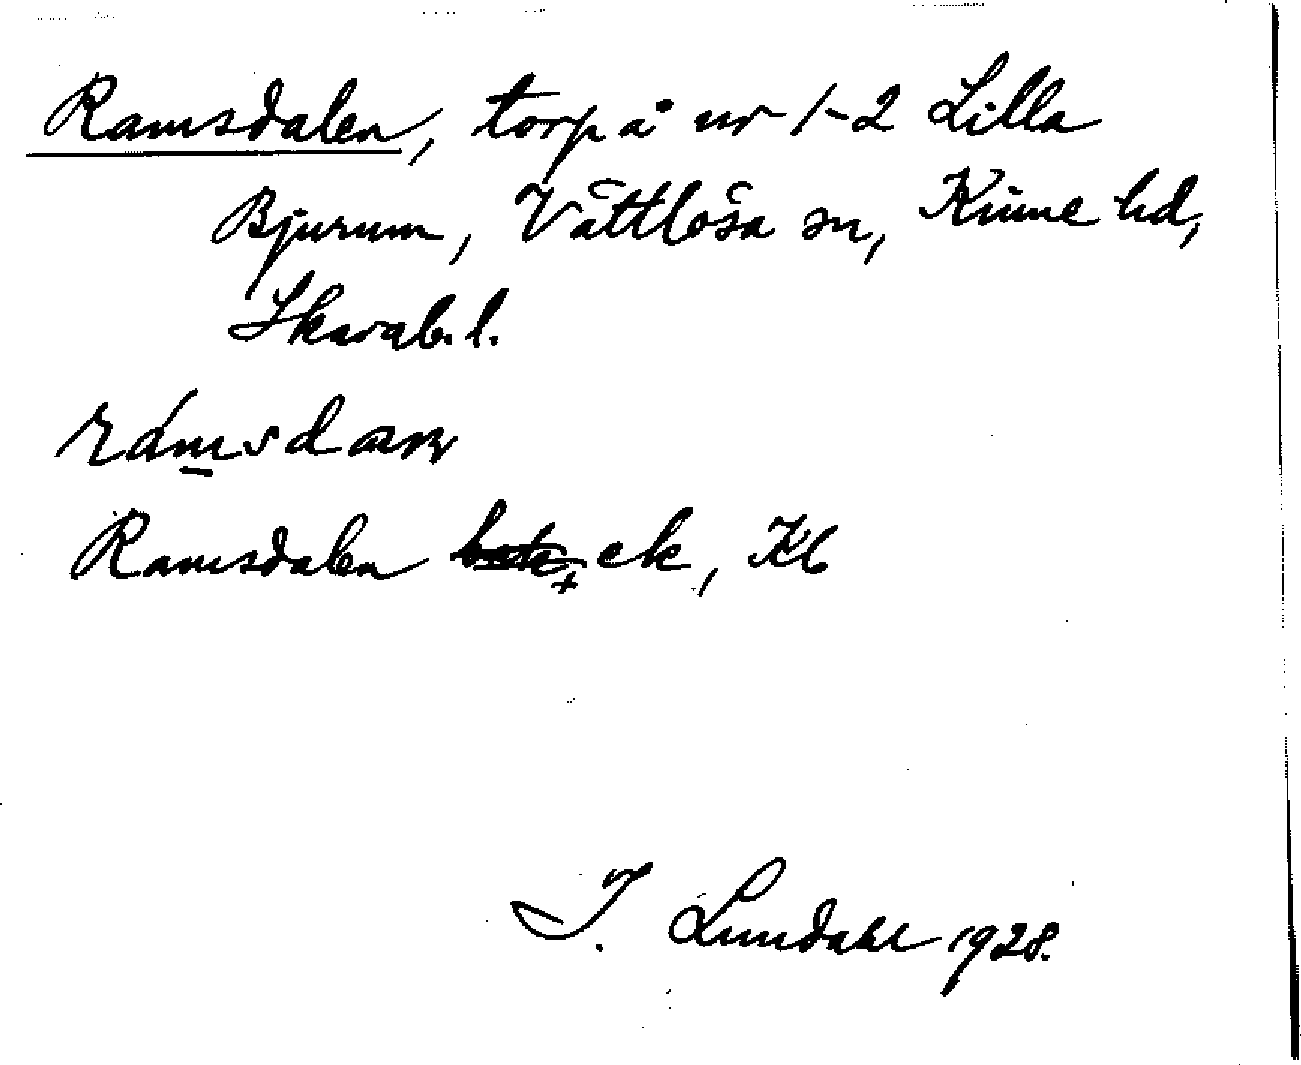 Ramsdalen, torp å nr 1-2 Lilla
Bjurum, Vättlösa sn, Kinne hd,
Skarab. l.
Ramsdalen ek, Kb
I. Lundahl 1928.